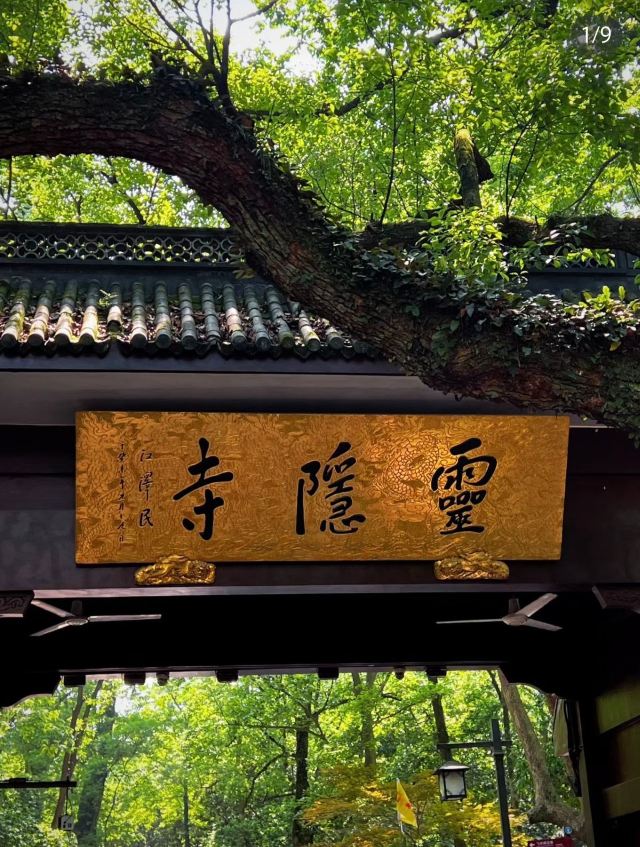 1/9
靈隱寺
江澤民